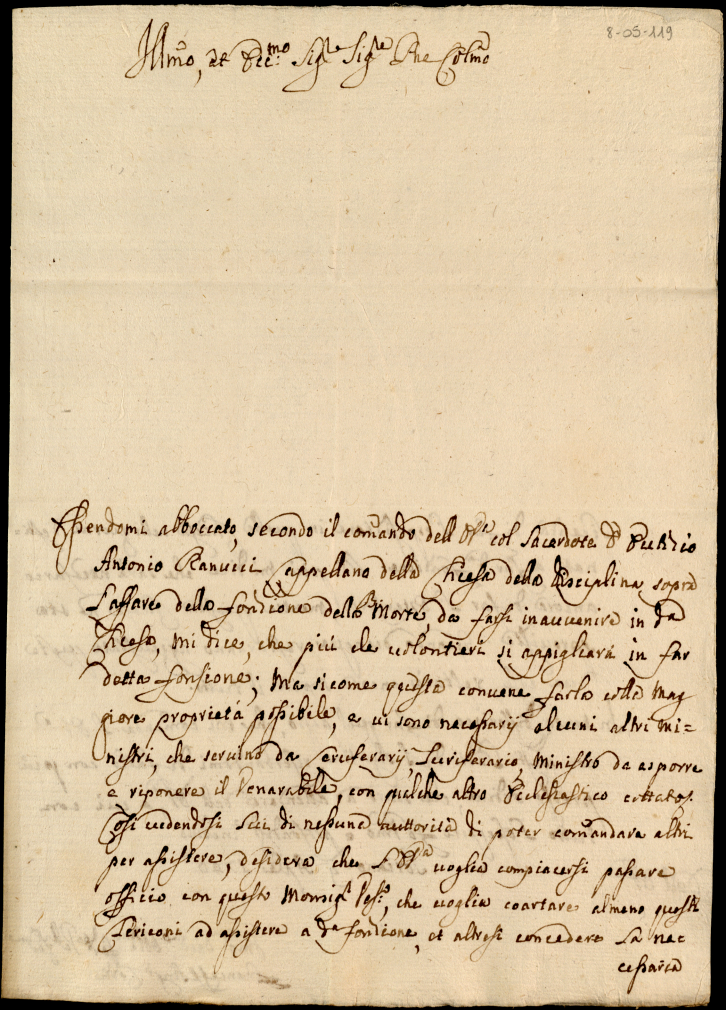 8-05-119
Illmo, et Ecc:mo Sigre Sigre Pne Colmo
Essendomi abboccato, secondo il comando dell'E.Va col Sacerdote D. Eutizio
Antonio Ranucci Cappellano della Chiesa della Disciplina, sopra
l'affare della fonzione della Morte, da farsi in auuenire in da
Chiesa, mi dice, che più che uolontieri si appigliarà in far
detta fonzione; ma si come questa conuene farla colla mag
giore proprietà possibile, e ui sono necessarij alcuni altri mi=
nistri, che seruino da Ceroferarij, Turiferario, Ministro da esporre
e riponere il Venerabile, con qualche altro Ecclesiastico cottatos:
Così uedendosi lui di nessuna auttorità di poter comandare altri
per assistere, desidera che l'E.Va uoglia compiacersi passare
officio con questo Monsigr Vesco, che uoglia coartare almeno questi
Chericoni ad assistere a da fonzione, et altresi concedere la nec
cessaria